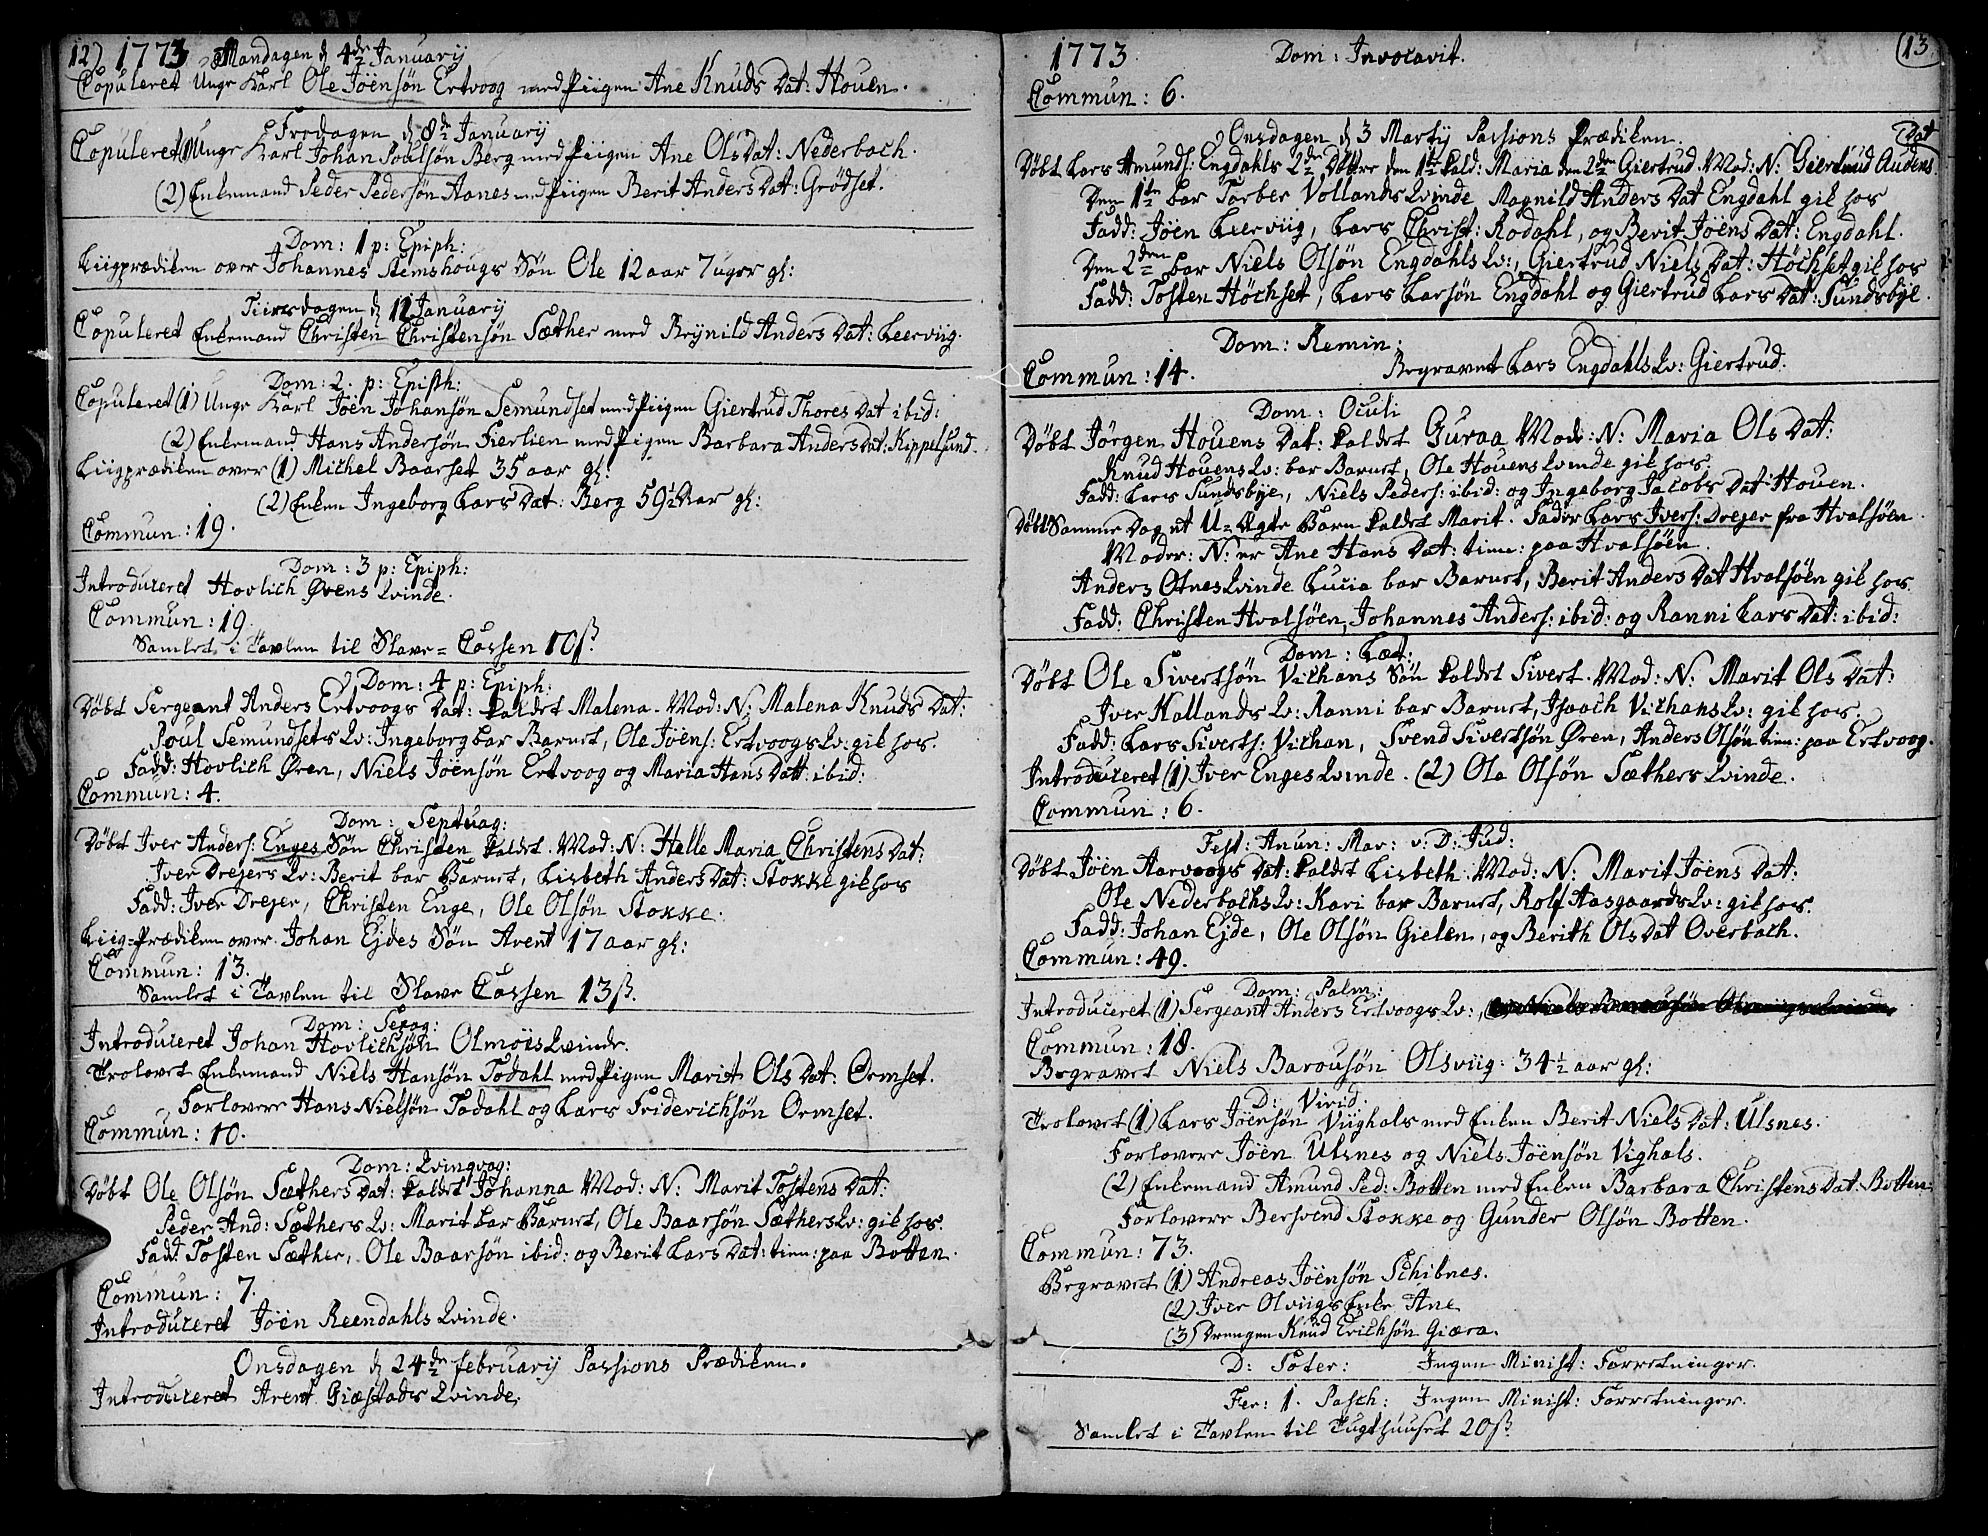 12) 1773 Mandagen d 4de January
Copuleret Unge Karl Ole Jöensön Ertvoog med Piigen Ane Knuds Dat: Houen.
Fredagen d 8de January
Copuleret (1) Unge Karl Johan Poulsön Berg med Piigen Ane Ols Dat: Nederbach.
(2) Enkemand Peder Pedersön Aanes med Piigen Berit Anders Dat: Grödset.
Dom: 1 p: Epiph:
Liigprædiken over Johannes Stemshougs Sön Ole 12 aar 7 uger gl:
Tiirsdagen d 12 January
Copuleret Enkemand Christen Christensön Sæther med Brynild Anders Dat: Leerviig.
Dom: 2. p: Epiph:
Copuleret (1) Unge Karl Jöen Johansön Semundset med Piigen Giertrud Thores Dat ibid:
(2) Enkemand Hans Andersön Fierlien med Pigen Barbara Anders Dat: Kippelsund.
Liigprædiken over (1) Michel Baarset 35 aar gl:
(2) Enken Ingeborg Lars Dat: Berg 59½ Aar gl:
Commun: 19.
Dom: 3 p: Epiph:
Introduceret Hovlich Ørens Qvinde.
Commun: 19.
Samlet i Tavlen til Slave=Cassen 10 ß.
Dom: 4 p: Epiph:
Döbt Sergeant Anders Ertvoogs Dat: kaldet Malena. Mod: N: Malena Knuds Dat:
Poul Semundsets Qv: Ingeborg bar Barnet, Ole Jöens: Ertvoogs Qv: gik hos.
Fadd: Hovlich Ören, Niels Jöensön Ertvoog og Maria Hans Datt: ibid:
Commun: 4.
Dom: Septuag:
Döbt Iver Anders: Enges Sön Christen kaldet. Mod: N: Helle Maria Christens Dat:
Iver Drejers Qv: Berit bar Barnet, Lisbeth Anders Dat: Stokke gik hos
Fadd: Iver Drejer, Christen Enge, Ole Olsön Stokke.
Liig=Prædiken over Johan Ejdes Sön Arent 17 aar gl:
Commun: 13.
Samlet i Tavlen til Slave Cassen 13 ß.
Dom: Sexag:
Introduceret Johan Hovlichsön Olmöis Qvinde.
Trolovet Enkemand Niels Hansön Todahl med Pigen Marit Ols Dat: Ormset.
Forlovere Hans Nielsön Todahl og Lars Friderichsön Ormset.
Commun: 10.
Dom: Qvinqvag:
Döbt Ole Olsön Sæthers Dat: kaldet Johanna Mod: N: Marit Tostens Dat:
Peder And: Sæthers Qv: Marit bar Barnet, Ole Baarsön Sæthers Qv: gik hos.
Fad: Tosten Sæther, Ole Baarsön ibid: og Berit Lars Dat: tien: paa Botten.
Commun: 7.
Introduceret Jöen Reendahls Qvinde.
Onsdagen d 24de February Passions Prædiken.
Introduceret Arent Giæstads Qvinde.
1773. Dom: Invocavit. (13.
Commun: 6.
Onsdagen d 3 Marty Passions Prædiken.
Döbt Lars Amunds: Engdahls 2de Döttre den 1te kald: Maria den 2den Giertrud. Mod: N: Giertrud Audens Dat
Den 1te bar Torber Vollands Qvinde Magnild Anders Dat Engdahl gik hos
Fadd: Jöen Leerviig, Lars Christ: Rodahl, og Berit Jöens Dat: Engdahl.
Den 2den bar Niels Olsön Engdahls Qv:, Giertrud Niels Dat: Höchset gik hos
Fadd: Tosten Höchset, Lars Larsön Engdahl og Giertrud Lars Dat: Sundsbye.
Dom: Remin:
Commun: 14. Begravet Lars Engdahls Qv: Giertrud.
Dom: Oculi
Döbt Jörgen Houens Dat: kaldet Guraa Mod: N: Maria Ols Dat:
Knud Houens Qv: bar Barnet, Ole Houens Qvinde gik hos
Fadd: Lars Sundsbye, Niels Peders: ibid: og Ingeborg Jacobs Dat Houen.
Döbt Samme Dag et U=Ægte Barn kaldet Marit. Fader Lars Ivers: Drejer fra Hvalsöen.
Moder: N: er Ane Hans Dat: tien: paa Hvalsöen.
Anders Otnes Qvinde Lucia bar Barnet, Berit Anders Dat Hvalsöen gik hos.
Fadd: Christen Hvalsöen, Johannes Anders: ibid: og Ranni Lars Dat: ibid:
Dom: Læt:
Döbt Ole Sivertsön Vichans Sön kaldet Sivert. Mod: N: Marit Ols Dat:
Iver Hallands Qv: Ranni bar Barnet, Isaach Vichans Qv: gik hos.
Fadd: Lars Siverts: Vichan, Svend Sivertsön Øren, Anders Olsön tien: paa Ertvoog.
Introduceret (1) Iver Enges Qvinde. (2) Ole Olsön Sæthers Qvinde.
Commun: 6.
Fest: Anun: Mar: v: D: Jud:
Döbt Jöen Aarvoogs Dat: kaldet Lisbeth. Mod: N: Marit Jöens Dat:
Ole Nederbachs Qv: Kari bar Barnet, Rolf Aasgaards Qv: gik hos.
Fadd: Johan Ejde, Ole Olsön Gielen, og Berith Ols Dat Overbach.
Commun: 49.
Dom: Palm:
Introduceret (1) Sergeant Anders Ertvoogs Qv:,
Commun: 18.
Begravet Niels Barousön Olsviig. 34½ aar gl:
D: Virid.
Trolovet (1) Lars Jöensön Viighals med Enken Berit Niels Dat: Ulsnes.
Forlovere Jöen Ulsnes og Niels Jöensön Vighals.
(2) Enkemand Amund Ped: Botten med Enken Barbara Christens Dat: Botten.
Forlovere Bersvend Stokke og Gunder Olsön Botten.
Commun: 73.
Begravet (1) Andreas Jöensön Schibnes.
(2) Iver Olviigs Enke Ane
(3) Drengen Knud Erichsön Giæra.
D: Pater: Ingen Minist: Forretninger.
Fer: 1. Pasch: Ingen Minist: Forretninger.
Samlet i Tavlen til Tugthuuset 20 ß.